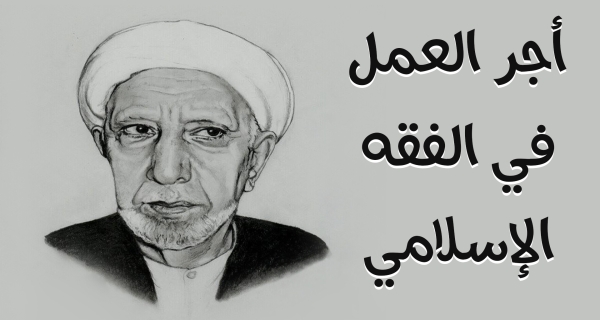 أجر العمل
في الفقه
الإسلامي